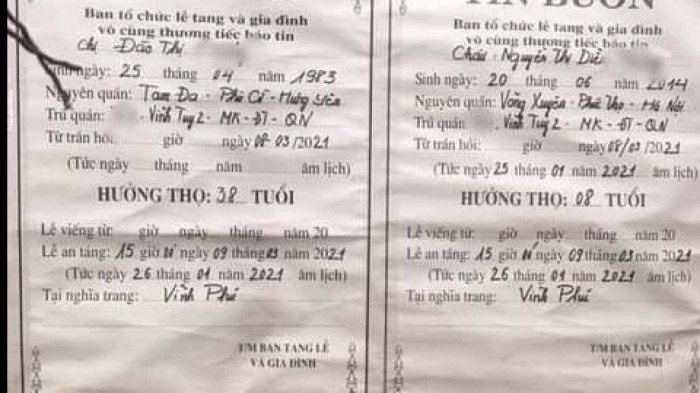 Ban tổ chức lễ tang và gia đình
vô cùng thương tiếc báo tin
Chị Đào Thị
Sinh ngày: 25 tháng 04 năm 1983
Nguyên quán: Tam Đa - Phù Cừ - Hưng Yên
Trú quán: Vĩnh Tuy 2 - MK - ĐT - QN
Từ trần hồi: giờ ngày 08-03/2021
(Tức ngày tháng năm âm lịch)
HƯỞNG THỌ: 38 TUỔI
Lễ viếng từ: giờ ngày tháng năm 20
Lễ an táng: 15 giờ 00' ngày 09 tháng 03 năm 2021
(Tức ngày 26 tháng 01 năm 2021 âm lịch)
Tại nghĩa trang: Vĩnh Phú
T/M BAN TANG LỄ
VÀ GIA ĐÌNH
TIN BUỒN
Ban tổ chức lễ tang và gia đình
vô cùng thương tiếc báo tin
Cháu Nguyễn Thị
Sinh ngày: 20 tháng 06 năm 2014
Nguyên quán: Võng Xuyên - Phúc Thọ - Hà Nội
Trú quán: Vĩnh Tuy 2 - MK - ĐT - QN
Từ trần hồi: giờ ngày 08/03/2021
(Tức ngày 25 tháng 01 năm 2021 âm lịch)
HƯỞNG THỌ: 08 TUỔI
Lễ viếng từ: giờ ngày tháng năm 20
Lễ an táng: 15 giờ 00' ngày 09 tháng 03 năm 2021
(Tức ngày 26 tháng 01 năm 2021 âm lịch)
Tại nghĩa trang: Vĩnh Phú
T/M BAN TANG LỄ
VÀ GIA ĐÌNH